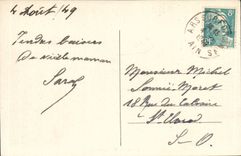 4 Août 49
Tendres baisers
de vieille maman
Sarah
Monsieur Michel
Sonnié-Moret
18 Rue du Calvaire
St Cloud
S-O